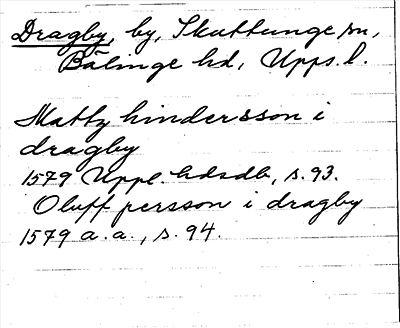 Dragby, by, Skuttunge sn,
Bälinge hd, Upps. l.
Matz hindersson i
dragby
1579 Uppl. hdsdb, s. 93.
Oluff persson i dragby
1579 a. a., s. 94.